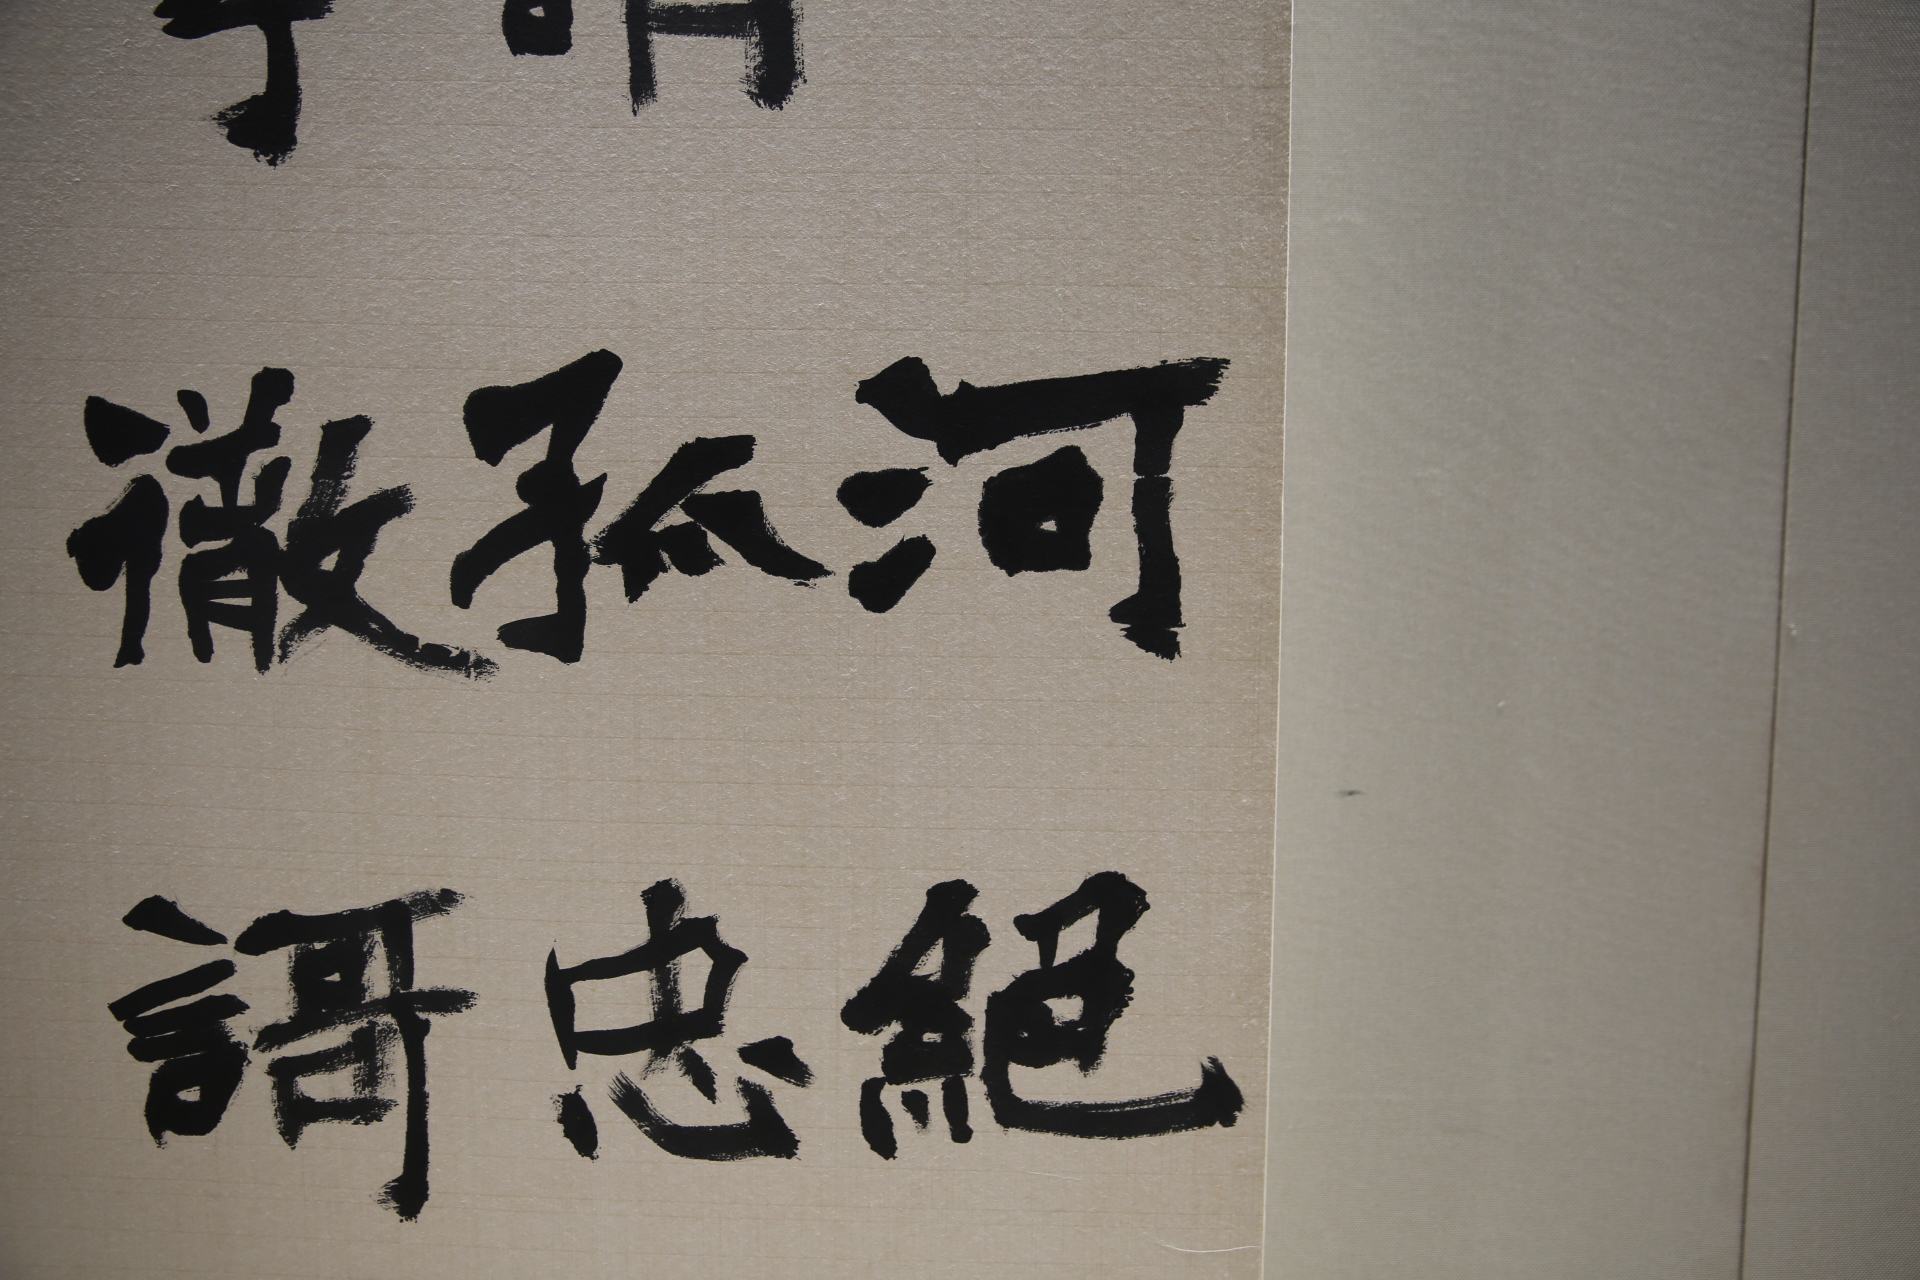 河絕
孤忠
徹謌